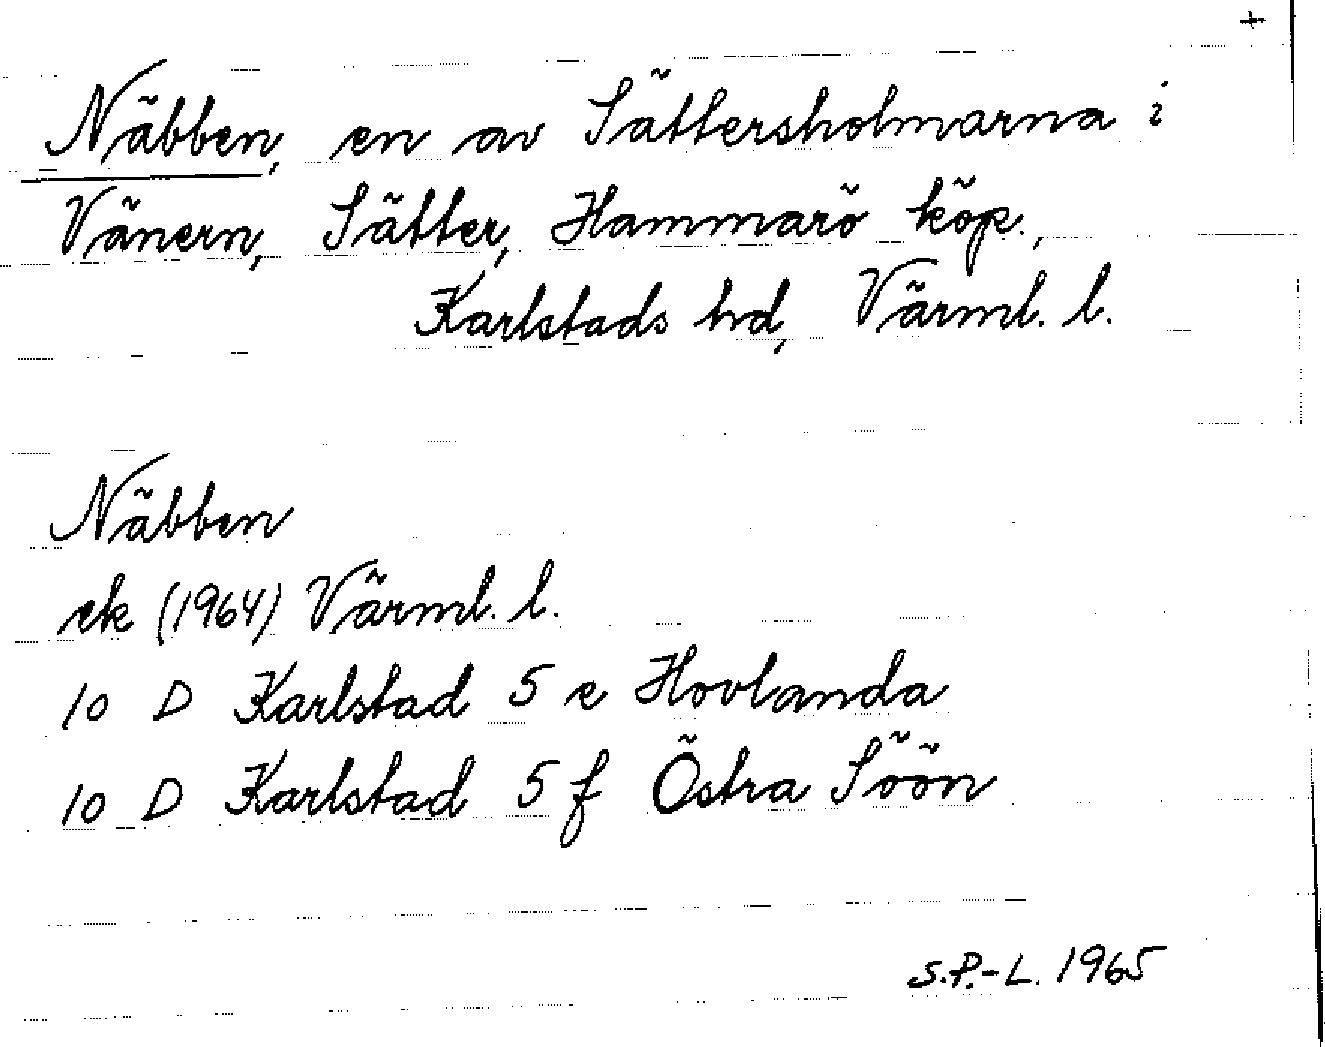 +
Näbben, en av Sättersholmarna i
Vänern, Sätter, Hammarö köp.,
Karlstads hd, Värml. l.
Näbben
ek (1964) Värml. l.
10 D Karlstad 5 e Hovlanda
10 D Karlstad 5 f Östra Söön
S.P.-L. 1965